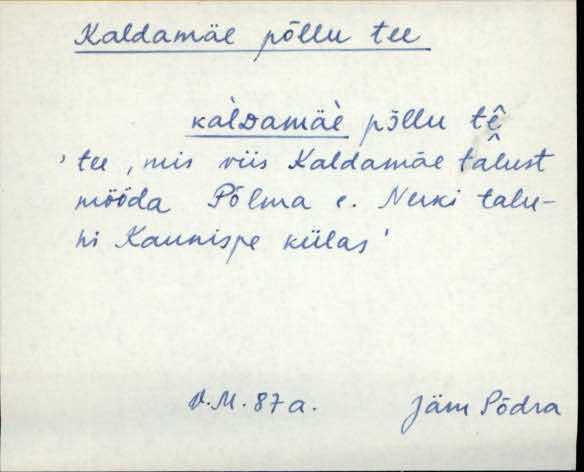 Kaldamäe põllu tee
kàlDamäè põllu tê
'tee, mis viis Kaldamäe talust
mööda Põlma e. Nerki talu-
ni Kaunispe külas'
V.M. 87a. Jäm Põdra